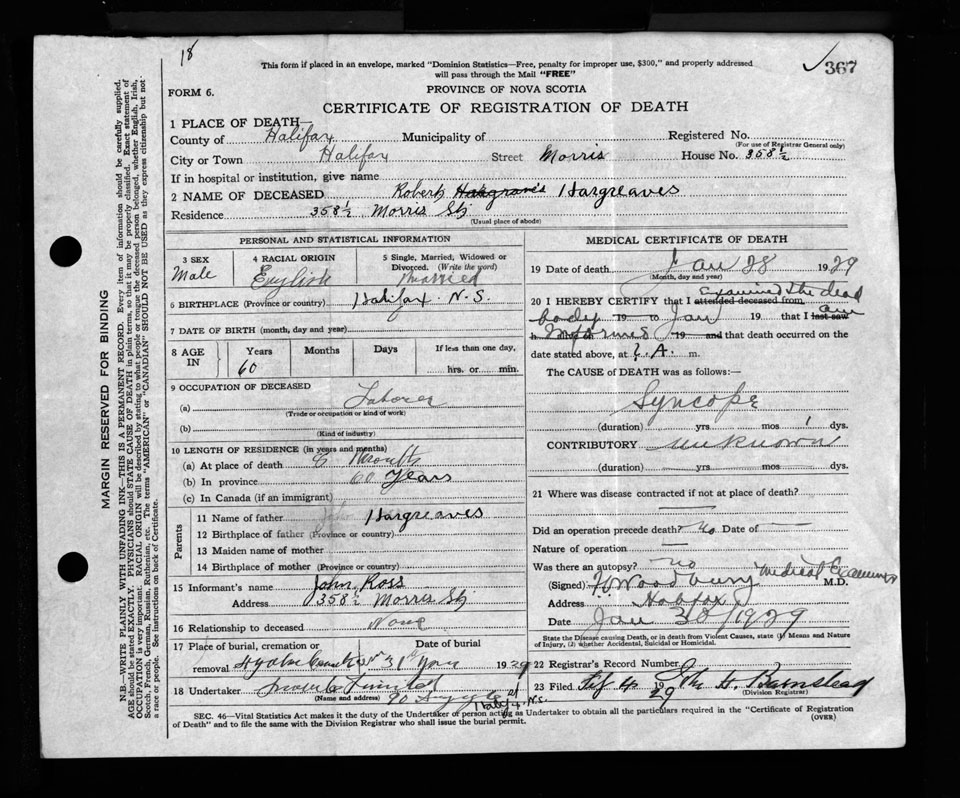 18
367
This form if placed in an envelope, marked "Dominion Statistics—Free, penalty for improper use, $300," and properly addressed
will pass through the Mail "FREE"
FORM 6.
PROVINCE OF NOVA SCOTIA
CERTIFICATE OF REGISTRATION OF DEATH
1 PLACE OF DEATH—
County of Halifax Municipality of Registered No.
(For use of Registrar General only)
City or Town Halifax Street Morris House No. 358½
If in hospital or institution, give name
2 NAME OF DECEASED Robert Hargraves Hargreaves
Residence 358½ Morris St
(Usual place of abode)
PERSONAL AND STATISTICAL INFORMATION
3 SEX 4 RACIAL ORIGIN 5 Single, Married, Widowed or
Divorced. (Write the word)
Male English Married
6 BIRTHPLACE (Province or country) Halifax N.S.
7 DATE OF BIRTH (month, day and year)
8 AGE IN Years Months Days If less than one day,
60 hrs. or min.
9 OCCUPATION OF DECEASED
(a) Laborer
(Trade or occupation or kind of work)
(b)
(Kind of industry)
10 LENGTH OF RESIDENCE (in years and months)
(a) At place of death 8 Months
(b) In province 60 Years
(c) In Canada (if an immigrant)
Parents
11 Name of father John Hargreaves
12 Birthplace of father (Province or country)
13 Maiden name of mother
14 Birthplace of mother (Province or country)
15 Informant's name John Ross
Address 358½ Morris St
16 Relationship to deceased None
17 Place of burial, cremation or Date of burial
removal 31 Jan 1929
18 Undertaker Snow & Limited
(Name and address) 90 Argyle St
Halifax, N.S.
MEDICAL CERTIFICATE OF DEATH
19 Date of death Jan 28 1929
(Month, day and year)
examined the dead
20 I HEREBY CERTIFY that I attended deceased from
body 19 to Jan 19 that I last saw am
h informed 19 and that death occurred on the
date stated above, at ? A. m.
The CAUSE of DEATH was as follows:—
Syncope
(duration) yrs mos 1 dys.
CONTRIBUTORY unknown
(duration) yrs mos dys.
21 Where was disease contracted if not at place of death?
Did an operation precede death? No Date of
Nature of operation
Was there an autopsy? no
(Signed) Woodbury Medical Examiner M.D.
Address Halifax
Date Jan 30 1929
State the Disease causing Death, or in death from Violent Causes, state (1) Means and Nature
of Injury, (2) whether Accidental, Suicidal or Homicidal.
22 Registrar's Record Number
23 Filed Feb 4 1929 H. Barnstead
(Division Registrar)
SEC. 46—Vital Statistics Act makes it the duty of the Undertaker or person acting as Undertaker to obtain all the particulars required in the "Certificate of Registration
of Death" and to file the same with the Division Registrar who shall issue the burial permit.
(OVER)
MARGIN RESERVED FOR BINDING
N.B.—WRITE PLAINLY WITH UNFADING INK—THIS IS A PERMANENT RECORD. Every item of information should be carefully supplied.
AGE should be stated EXACTLY. PHYSICIANS should STATE CAUSE OF DEATH in plain terms, so that it may be properly classified. Exact statement of
OCCUPATION is very important. RACIAL ORIGIN will be described by stating to what people or tongue the deceased person belonged, whether English, Irish,
Scotch, French, German, Russian, Ruthenian, etc. The terms "AMERICAN" or "CANADIAN" SHOULD NOT BE USED as they express citizenship but not
a race or people. See instructions on back of Certificate.